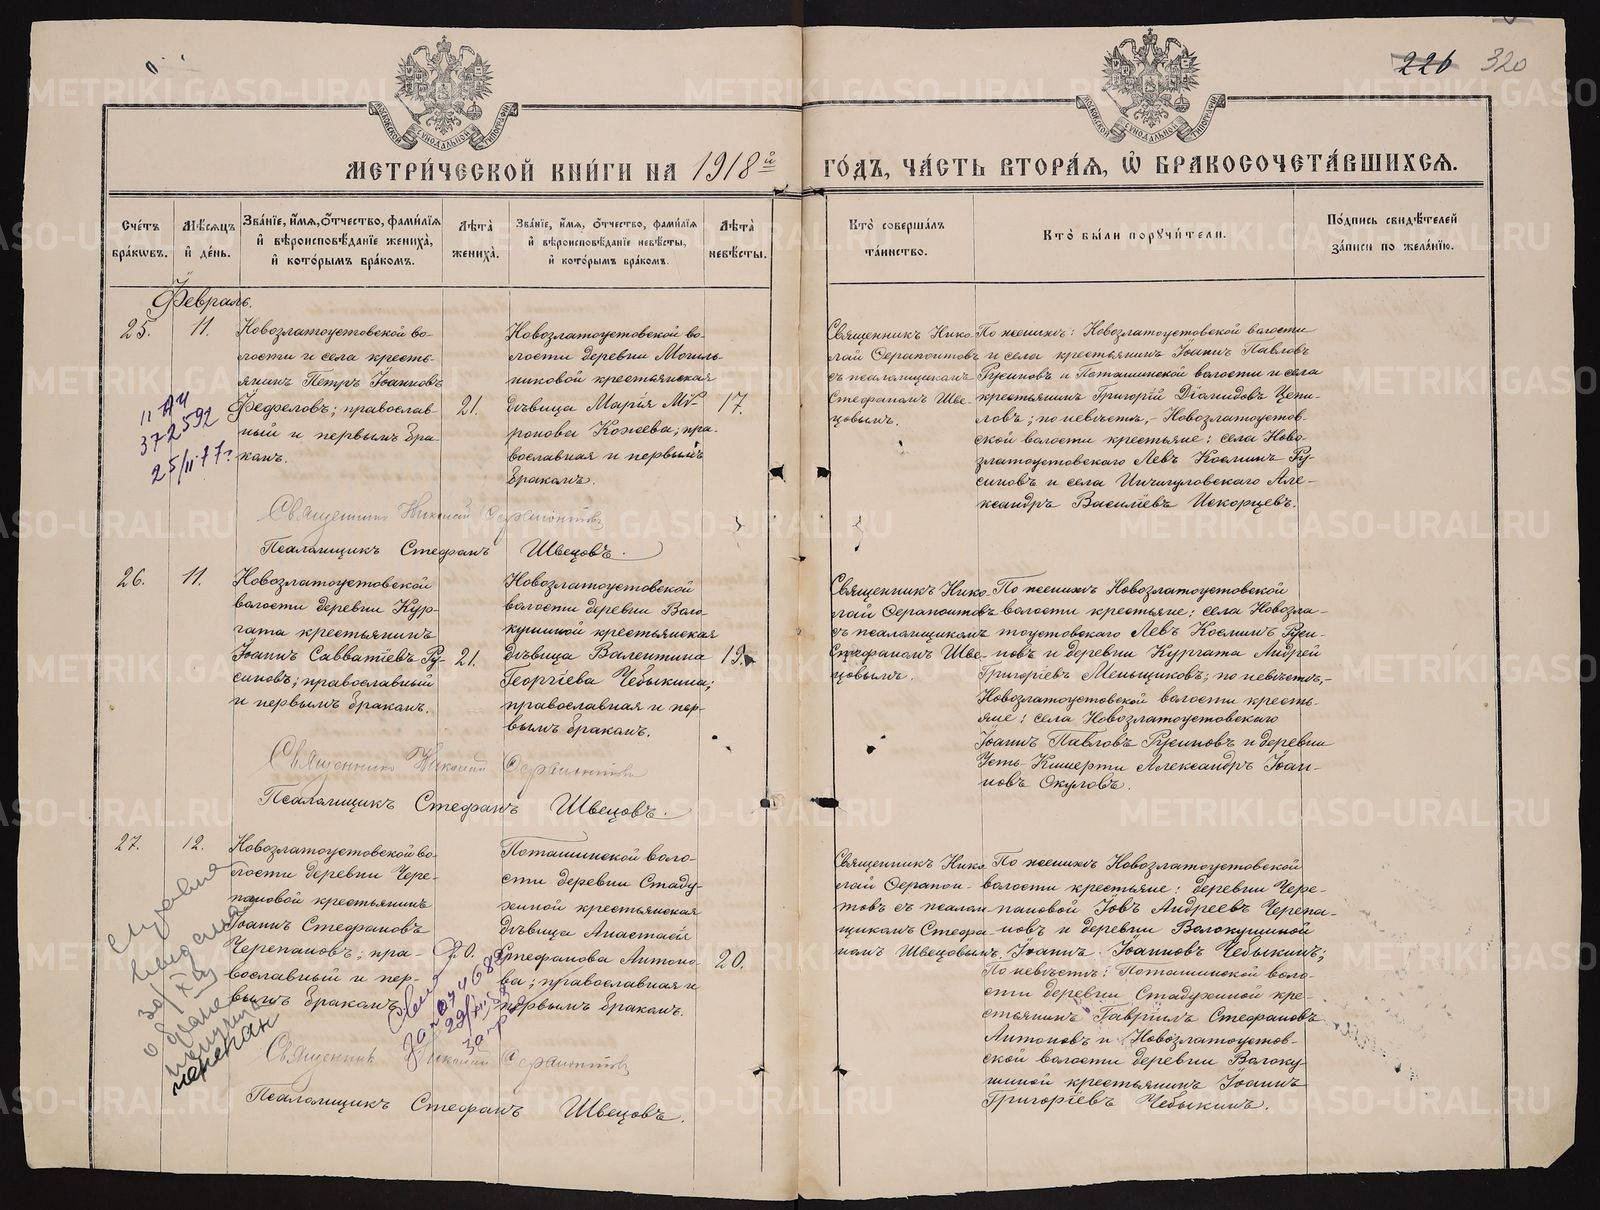 226 320
МОСКОВСКОЙ СѴНОДАЛЬНОЙ ТИПОГРАФІИ
МОСКОВСКОЙ СѴНОДАЛЬНОЙ ТИПОГРАФІИ
МЕТРИ́ЧЕСКОЙ КНИ́ГИ НА 1918й ГО́ДЪ, ЧА́СТЬ ВТОРА́Я, Ѽ БРАКОСОЧЕТА́ВШИХСЯ.
Сче́тъ бра́кѡвъ.
Мѣ́сяцъ и҆ де́нь.
Зва́нїе, и҆́мя, ѻ҆́тчество, фами́лїя
и҆ вѣроисповѣ́данїе жениха̀,
и҆ кото́рымъ бра́комъ.
Лѣ́та̀ жениха̀.
Зва́нїе, и҆́мя, ѻ҆́тчество, фами́лїя
и҆ вѣроисповѣ́данїе невѣ́сты,
и҆ кото́рымъ бра́комъ.
Лѣ́та̀ невѣ́сты.
Кто̀ соверша́лъ
та́инство.
Кто̀ бы́ли порꙋчи́тели.
По́дпись свидѣ́телей
за́писи по жела́нїю.
Февраль.
25.
11.
Новозлатоустовской во-
лости и села кресть-
янинъ Петръ Іоанновъ
Фефеловъ; православ-
ный и первымъ бра-
комъ.
21.
Новозлатоустовской во-
лости деревни Могиль-
никовой крестьянская
дѣвица Марія Мѵ-
ронова Конева; пра-
вославная и первымъ
бракомъ.
17.
Священникъ Нико-
лай Серапонтовъ
съ псаломщикомъ
Стефаномъ Шве-
цовымъ.
По женихѣ: Новозлатоустовской волости
и села крестьянинъ Іоаннъ Павловъ
Русиновъ и Поташинской волости и села
крестьянинъ Григорій Діомидовъ Цепи-
ловъ; по невѣстѣ, - Новозлатоустов-
ской волости крестьяне: села Ново-
златоустовскаго Левъ Косминъ Ру-
синовъ и села Ничигуловскаго Але-
ксандръ Василіевъ Искорцевъ.
372592
25/II 77г
Священникъ Николай Серапонтовъ
Псаломщикъ Стефанъ Швецовъ.
26.
11.
Новозлатоустовской
волости деревни Кур-
гата крестьянинъ
Іоаннъ Савватіевъ Ру-
синовъ; православный
и первымъ бракомъ.
21.
Новозлатоустовской
волости деревни Воло-
кушиной крестьянская
дѣвица Валентина
Георгіева Чебыкина;
православная и пер-
вымъ бракомъ.
19.
Священникъ Нико-
лай Серапонтовъ
съ псаломщикомъ
Стефаномъ Шве-
цовымъ.
По женихѣ Новозлатоустовской
волости крестьяне: села Новозла-
тоустовскаго Левъ Косминъ Руси-
новъ и деревни Кургата Андрей
Григоріевъ Меньщиковъ; по невѣстѣ,-
Новозлатоустовской волости кресть-
яне: села Новозлатоустовскаго
Іоаннъ Павловъ Русиновъ и деревни
Усть-Кишерти Александръ Іоан-
новъ Окуловъ.
Священникъ Николай Серапонтовъ
Псаломщикъ Стефанъ Швецовъ.
27.
12.
Новозлатоустовской во-
лости деревни Чере-
пановой крестьянинъ
Іоаннъ Стефановъ
Черепановъ; пра-
вославный и пер-
вымъ бракомъ.
20.
Поташинской воло-
сти деревни Стаду-
хиной крестьянская
дѣвица Анастасія
Стефанова Антоно-
ва; православная и
первымъ бракомъ.
20.
Священникъ Нико-
лай Серапон-
товъ съ псалом-
щикомъ Стефа-
номъ Швецовымъ.
По женихѣ Новозлатоустовской
волости крестьяне: деревни Чере-
пановой Іовъ Андреевъ Черепа-
новъ и деревни Волокушиной
Іоаннъ Іоанновъ Чебыкинъ;
По невѣстѣ: Поташинской воло-
сти деревни Стадухиной кре-
стьянинъ Гавріилъ Стефановъ
Антоновъ и Новозлатоустов-
ской волости деревни Волоку-
шиной крестьянинъ Іоаннъ
Григоріевъ Чебыкинъ.
Справка
о браке
Священникъ Николай Серапонтовъ
Псаломщикъ Стефанъ Швецовъ.
METRIKI.GASO-URAL.RU